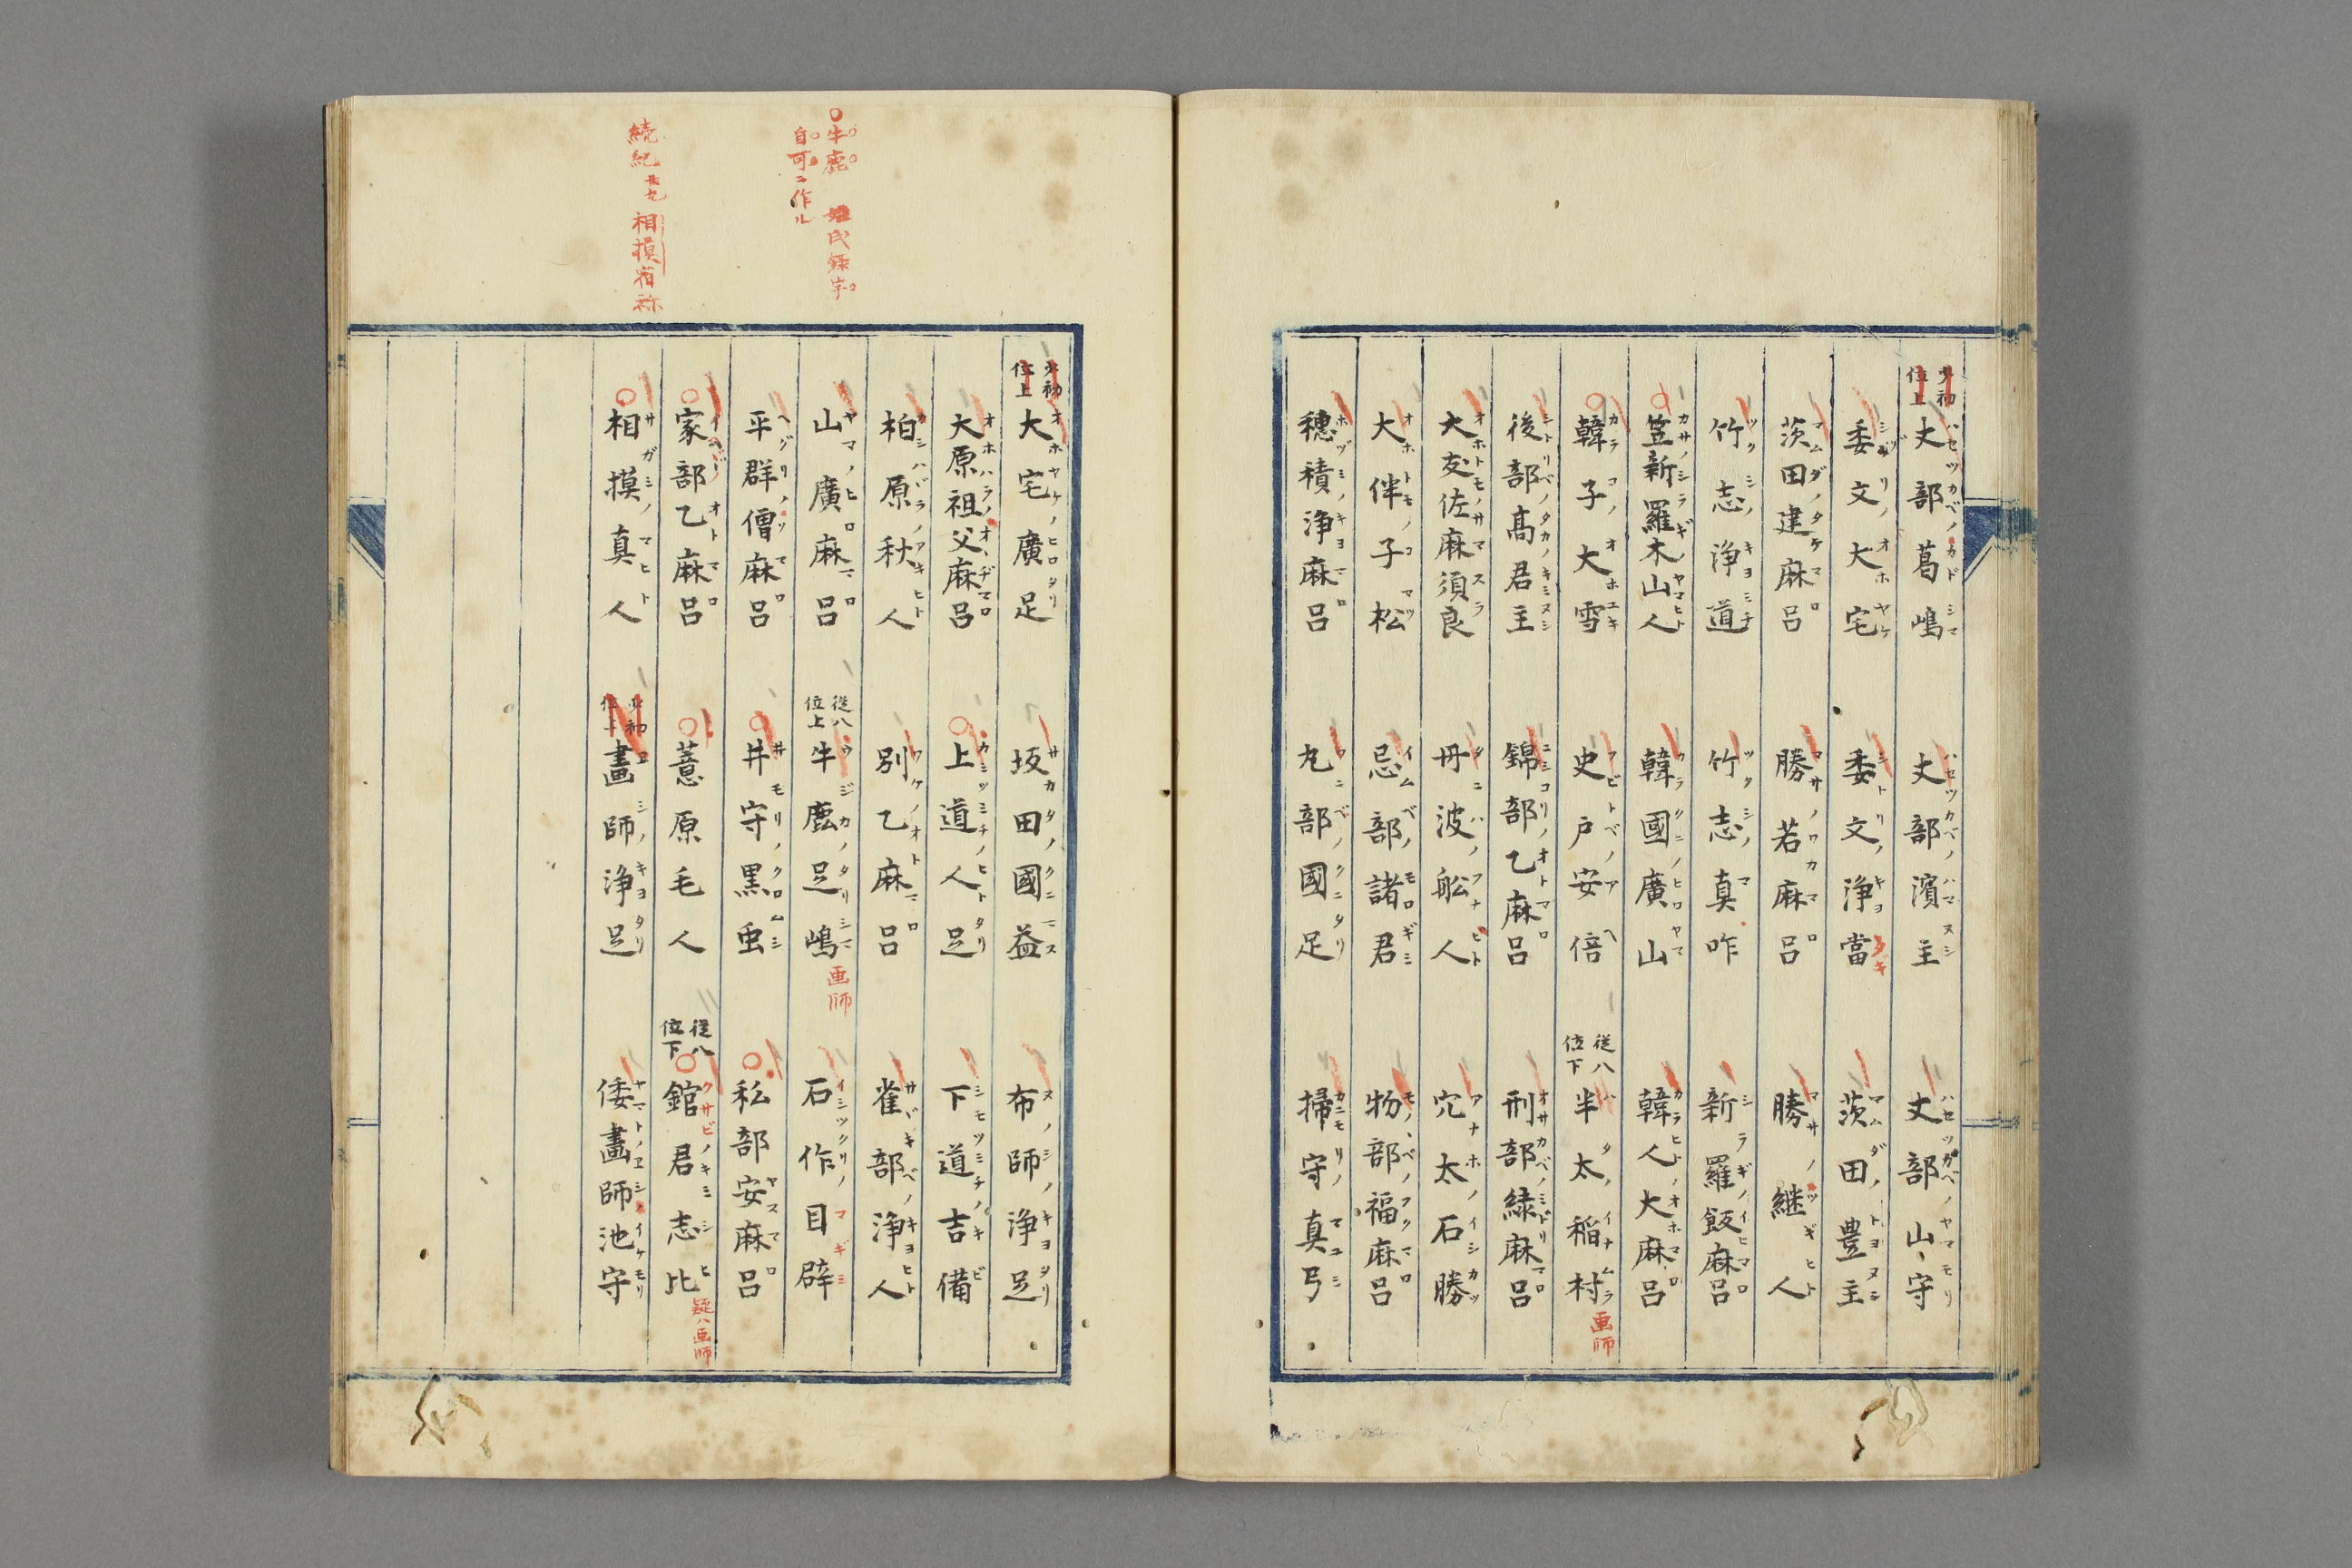 少初位上
丈部葛嶋
丈部濱主
丈部山守
委文大宅
委文浄當
茨田豊主
茨田建麻呂
勝若麻呂
勝継人
竹志浄道
竹志真咋
新羅飯麻呂
笠新羅木山人
韓國廣山
韓人大麻呂
韓子大雪
史戸安倍
従八位下
半太稲村
画師
後部高君主
錦部乙麻呂
刑部緑麻呂
大友佐麻須良
丹波舩人
穴太石勝
大伴子松
忌部諸君
物部福麻呂
穂積浄麻呂
丸部國足
掃守真弓
少初位上
大宅廣足
坂田國益
布師浄足
大原祖父麻呂
上道人足
下道吉備
柏原秋人
別乙麻呂
雀部浄人
○牛鹿 姓氏録宇
自可ニ作ル
山廣麻呂
従八位上
牛鹿足嶋
画師
石作目辟
平群僧麻呂
井守黒虫
私部安麻呂
家部乙麻呂
薏原毛人
従八位下
錧君志比
疑ハ画師
続紀廿九 相摸宿祢
相摸真人
畫師浄足
倭畫師池守